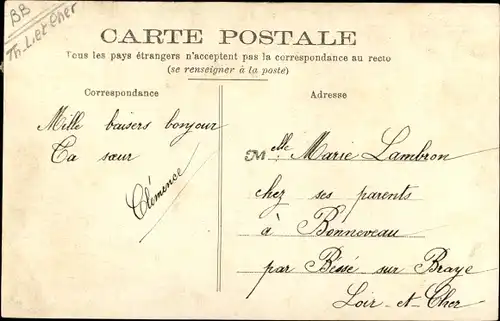 BB
Th. L. et Cher
CARTE POSTALE
Tous les pays étrangers n'acceptent pas la correspondance au recto
(se renseigner à la poste)
Correspondance
Mille baisers bonjour
Ta sœur
Clémence
Adresse
Melle Marie Lambron
chez ses parents
à Bonneveau
par Béssé sur Braye
Loir-et-Cher